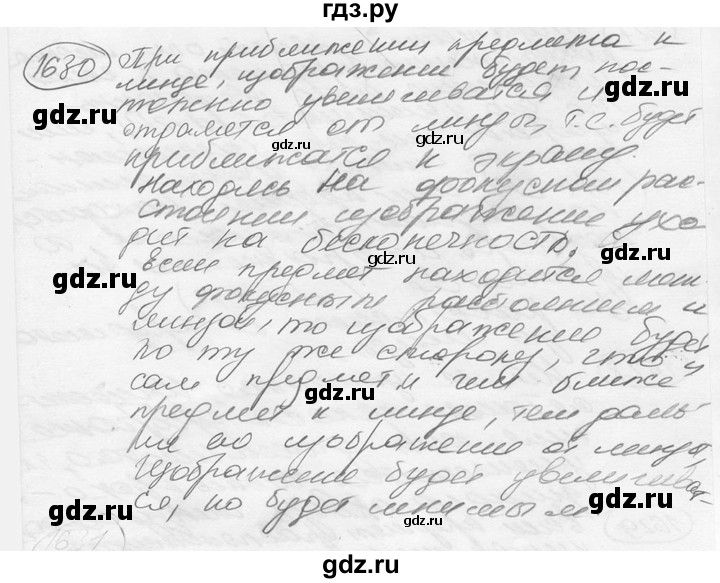 гдз.ру
1630 При приближении предмета к
линзе, изображение будет пос-
тоянно увеличиватся и
отдалятся от линзы, т.е. будет
приближатся к экрану.
находясь на фокусном рас-
стоянии изображение ухо
дит на бесконечность.
Если предмет находится меж
ду фокусным расстоянием и
линзой, то изображение будет
по ту же сторону, что и
сам предмет и чем ближе
предмет к линзе, тем даль
ше его изображение от линзы
Изображение будет увеличиват-
ся, но будет мнимым
1631
gdz.ru
gdz.ru
gdz.ru
gdz.ru
gdz.ru
gdz.ru
gdz.ru
gdz.ru
gdz.ru
gdz.ru
gdz.ru
gdz.ru
gdz.ru
gdz.ru